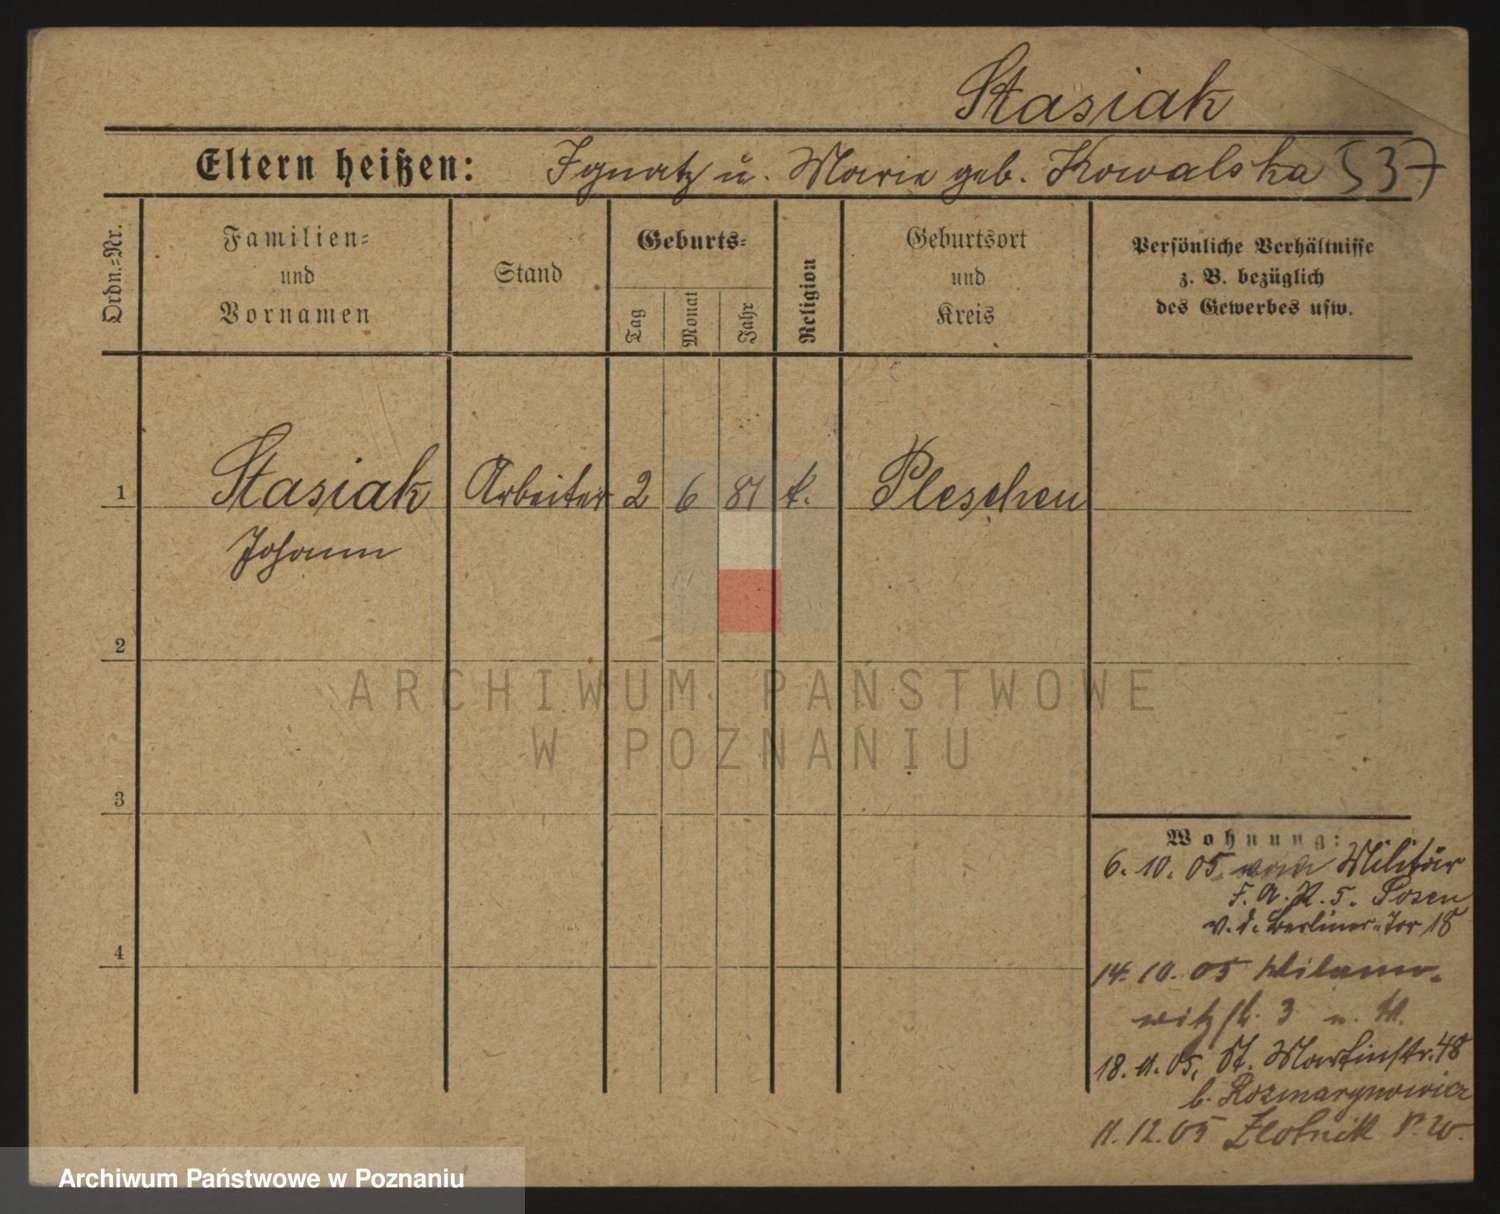 Stasiak
Eltern heißen: Ignatz u. Marie geb. Kowalska 537
Ordn.=Nr.
Familien=
und
Vornamen
Stand
Geburts=
Tag
Monat
Jahr
Religion
Geburtsort
und
Kreis
Persönliche Verhältnisse
z. B. bezüglich
des Gewerbes usw.
1 Stasiak Arbeiter 2 6 81 k. Pleschen
Johann
2
ARCHIWUM PAŃSTWOWE
W POZNANIU
3
Wohnung:
6. 10. 05 vom Militär
F. A. R. 5. Posen
v. d. Berliner=Tor 18
4
14. 10. 05
3
18. 11. 05, St. Martinstr. 48
b. Rozmarynowicz
11. 12. 05 Zlotnik P. W.
Archiwum Państwowe w Poznaniu